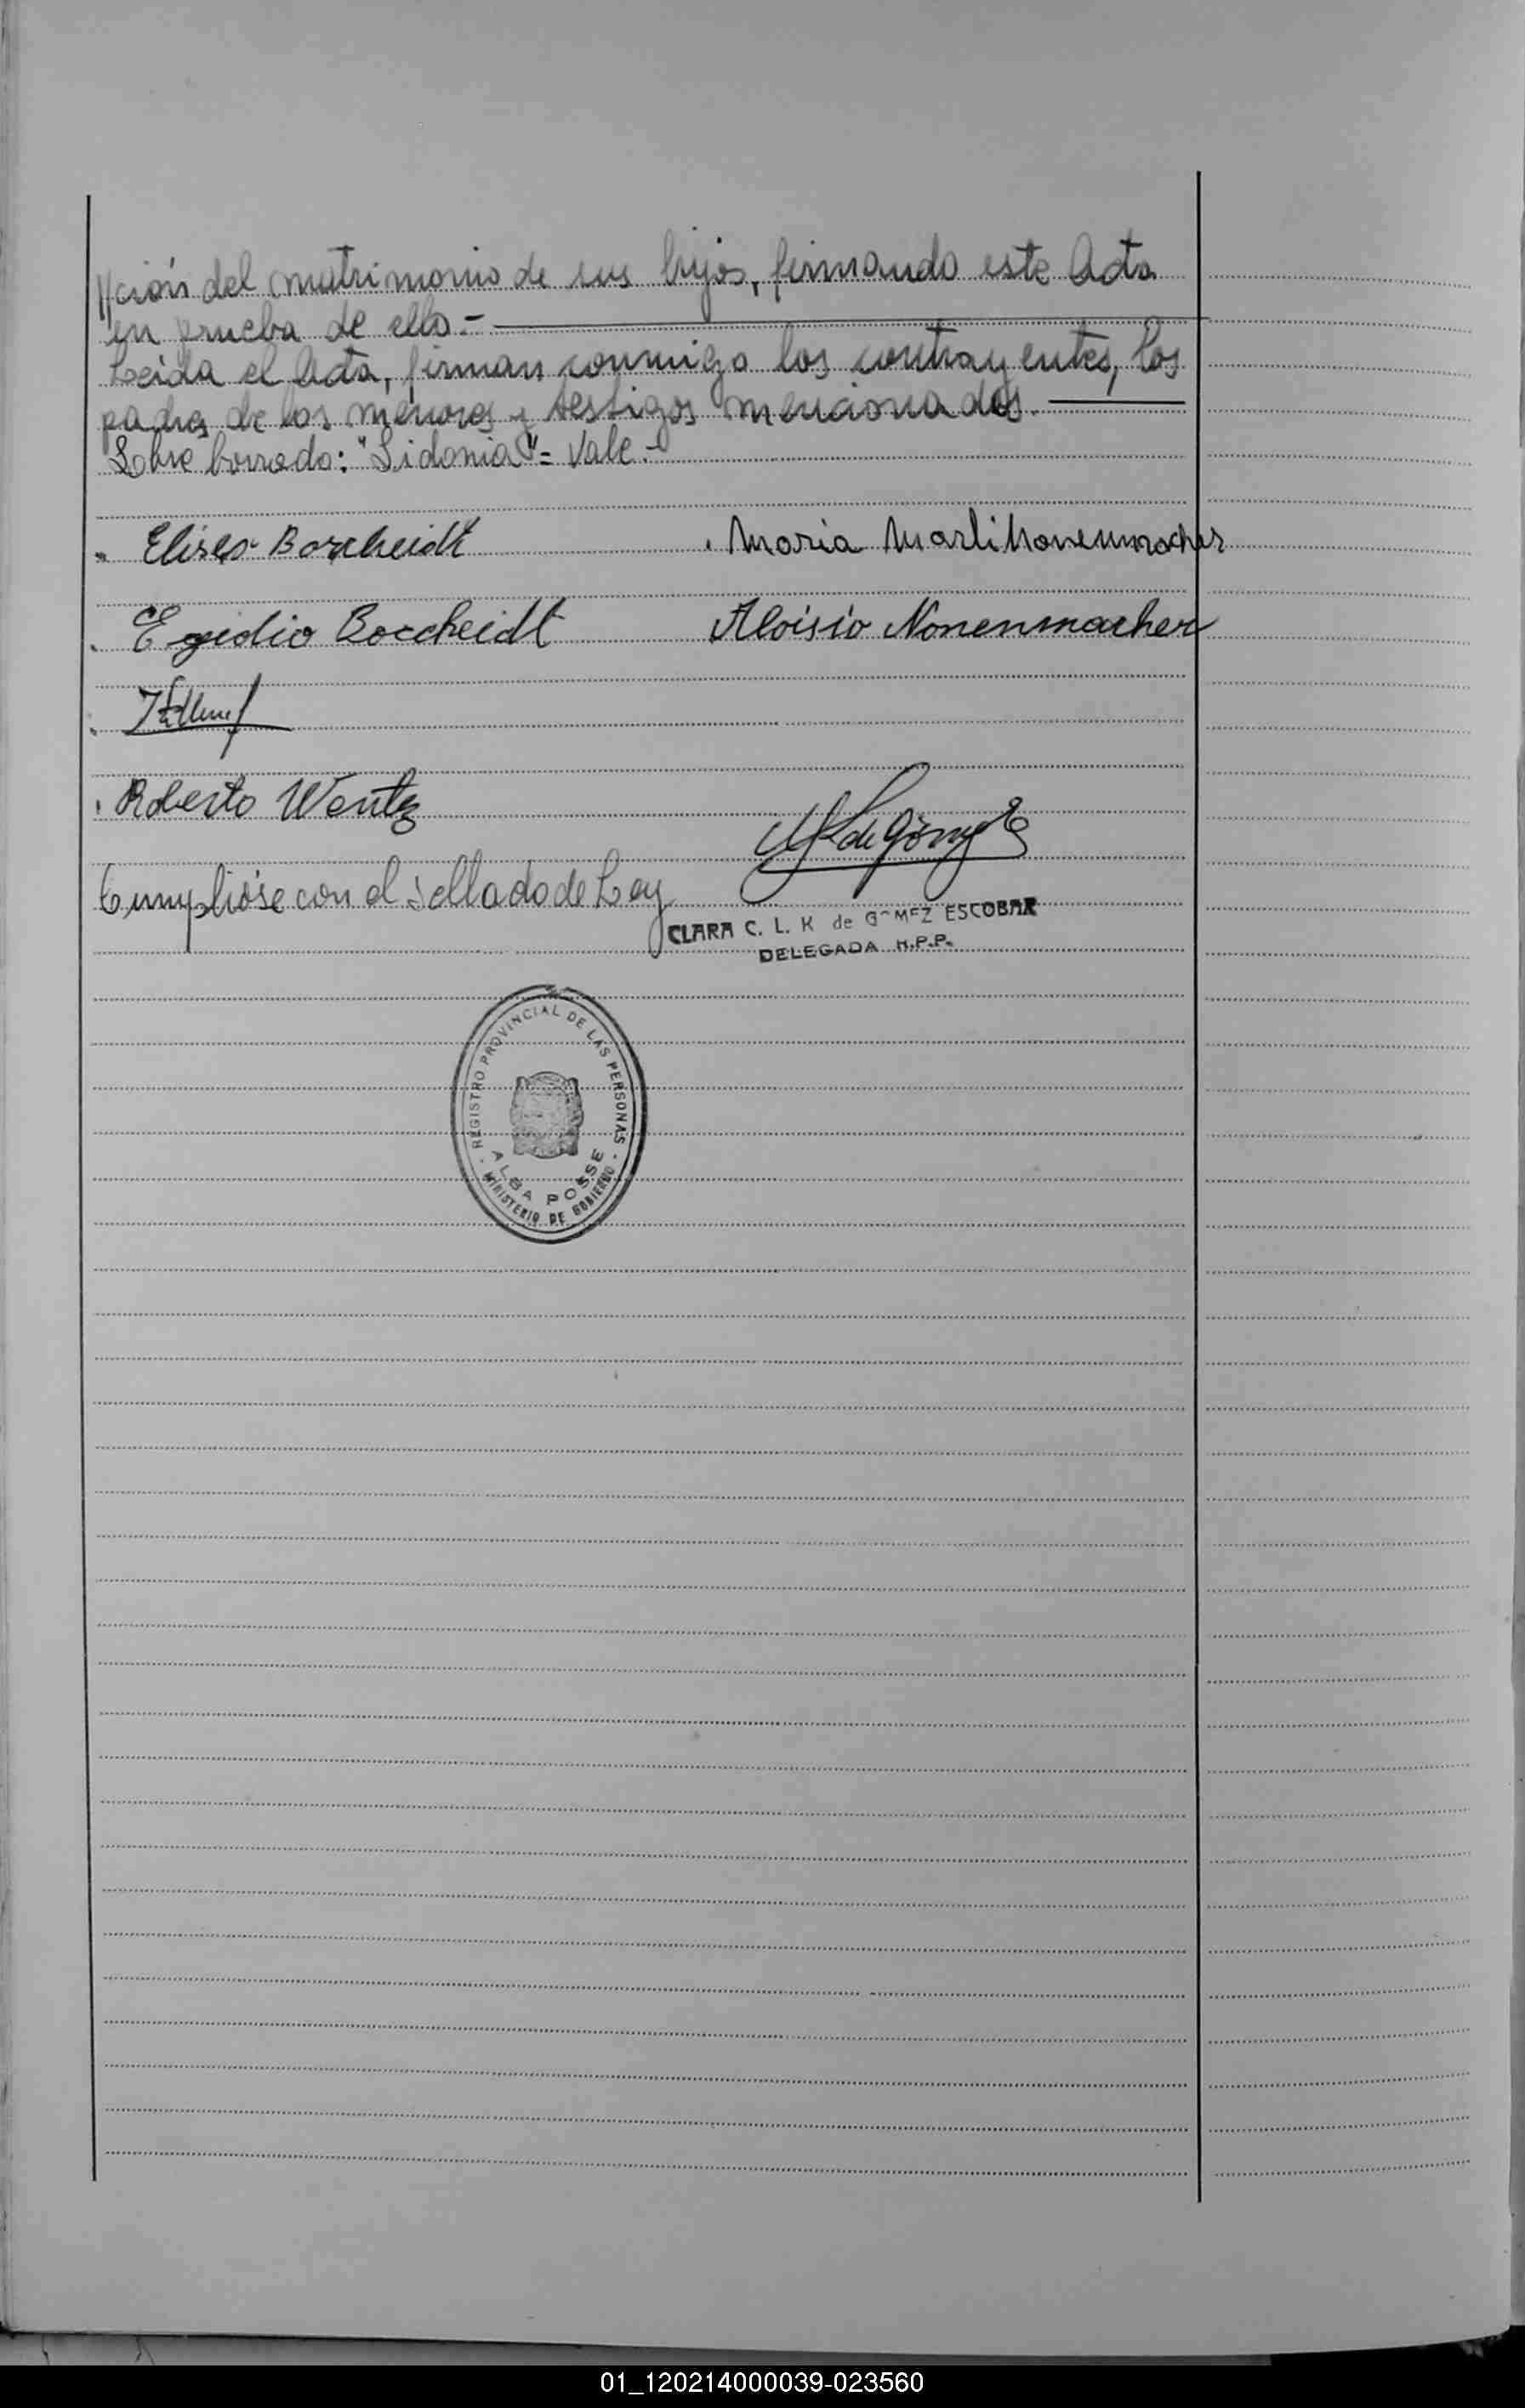 //ción del matrimonio de sus hijos, firmando este Acta
en prueba de ello.-
Leida el Acta, firman conmigo los contrayentes, los
padres de los menores y testigos mencionados.
Sobre borrado: "Sidonia" = Vale.-
Eliseo Borcheidt
Maria Marli Nonenmacher
Egidio Borcheidt
Aloisio Nonenmacher
Roberto Wentz
Cumplióse con el sellado de Ley
CLARA C. L. K de GOMEZ ESCOBAR
DELEGADA R.P.P.
REGISTRO PROVINCIAL DE LAS PERSONAS
ALBA POSSE
MINISTERIO DE GOBIERNO
01_120214000039-023560